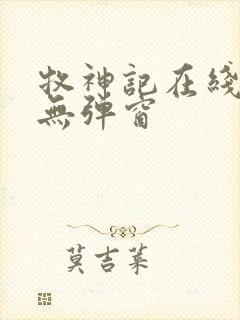 牧神記在綫
無彈窗
莫吉葉